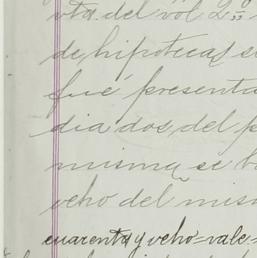 vta. del vol 2º
de hipotecas s
fué presenta
dia dos, del p
misma se h
veho del mis
cuarenta y veho=vale=